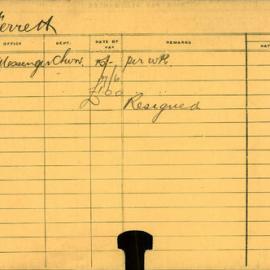 erreth
OFFICE DEPT. DATE OF PAY REMARKS DAT
Messenger Chvs. per wk.
7/6
£100 Resigned